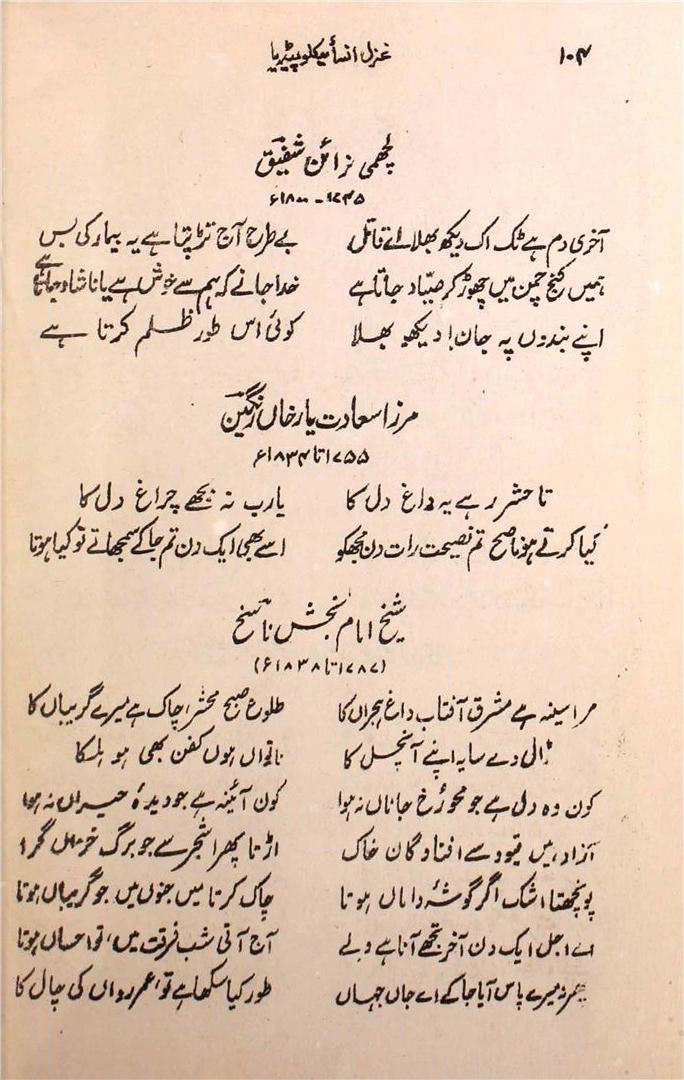 ۱۰۴ غزل انسائیکلوپیڈیا
لچھمی نرائن شفیق
۱۷۴۵ - ۱۸۰۰ء
آخری دم ہے ٹک اک دیکھ بھلا اے قاتل بے طرح آج تڑپتا ہے یہ بیمار کی بس
ہمیں کنج چمن میں چھوڑ کر صیّاد جاتا ہے خدا جانے کہ ہم سے خوش ہے یا ناشاد جاتا ہے
اپنے بندوں پہ جان! دیکھو بھلا کوئی اس طور ظلم کرتا ہے
مرزا سعادت یار خاں رنگین
۱۷۵۵ تا ۱۸۳۴ء
تا حشر رہے یہ داغ دل کا یارب نہ بجھے چراغ دل کا
کیا کرتے ہو ناصح تم نصیحت رات دن مجھکو اسے بھی ایک دن تم جا کے سمجھاتے تو کیا ہوتا
شیخ امام بخش ناسخ
(۱۷۸۷ تا ۱۸۳۸ء)
مرا سینہ ہے مشرق آفتاب داغ ہجراں کا طلوع صبح محشر، چاک ہے میرے گریباں کا
ڈالی دے سایہ اپنے آنچل کا ناتواں ہوں کفن بھی ہو ہلکا
کون وہ دل ہے جو محو رخ جاناں نہ ہوا کون آئینہ ہے جو دیدۂ حیراں نہ ہوا
آزاد ہیں قیود سے افتادگان خاک اڑتا پھرا شجر سے جو برگ خزاں گرا
پونچھتا اشک اگر گوشۂ داماں ہوتا چاک کرتا میں جنوں میں جو گریباں ہوتا
اے اجل ایک دن آخر تجھے آنا ہے ولے آج آتی شب فرقت میں، تو احساں ہوتا
پھر نہ میرے پاس آیا جا کے اے جاں جہاں طور کیا سکھا ہے تو، عمر رواں کی چال کا